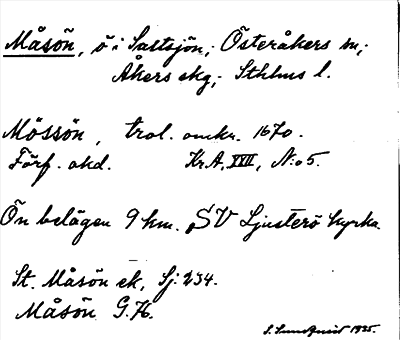 Måsön, ö i Saltsjön; Österåkers sn;
Åkers skg; Sthlms l.
Mössön, trol. omkr. 1670.
Förf. okd. Kr.A. XVII, N:o 5.
Ön belägen 9 km. SV Ljusterö kyrka.
St. Måsön ek, Sj: 234.
Måsön G.K.
S. Sundqvist 1925.